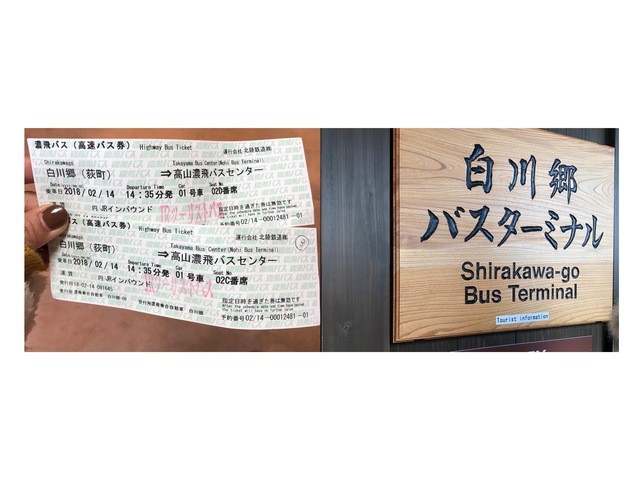 濃飛バス（高速バス券） Highway Bus Ticket 運行会社 北陸鉄道㈱
Shirakawago Takayama Bus Center(Nohi Bus Terminal)
白川郷（荻町） ⇒高山濃飛バスセンター
Departure Time Car Seat No
乗車日 2018/02/14 14:35分発 01号車 02D番席
円 JRインバウンド
指定日時を過ぎた券は無効です
予約番号02/14-00012481-01
Highway Bus Ticket 運行会社 北陸鉄道㈱
Shirakawago Takayama Bus Center(Nohi Bus Terminal)
白川郷（荻町） ⇒高山濃飛バスセンター
Departure Time Car Seat No
乗車日 2018/02/14 14:35分発 01号車 02C番席
円 JRインバウンド
指定日時を過ぎた券は無効です
予約番号02/14-00012481-01
白川郷
バスターミナル
Shirakawa-go
Bus Terminal
Tourist information